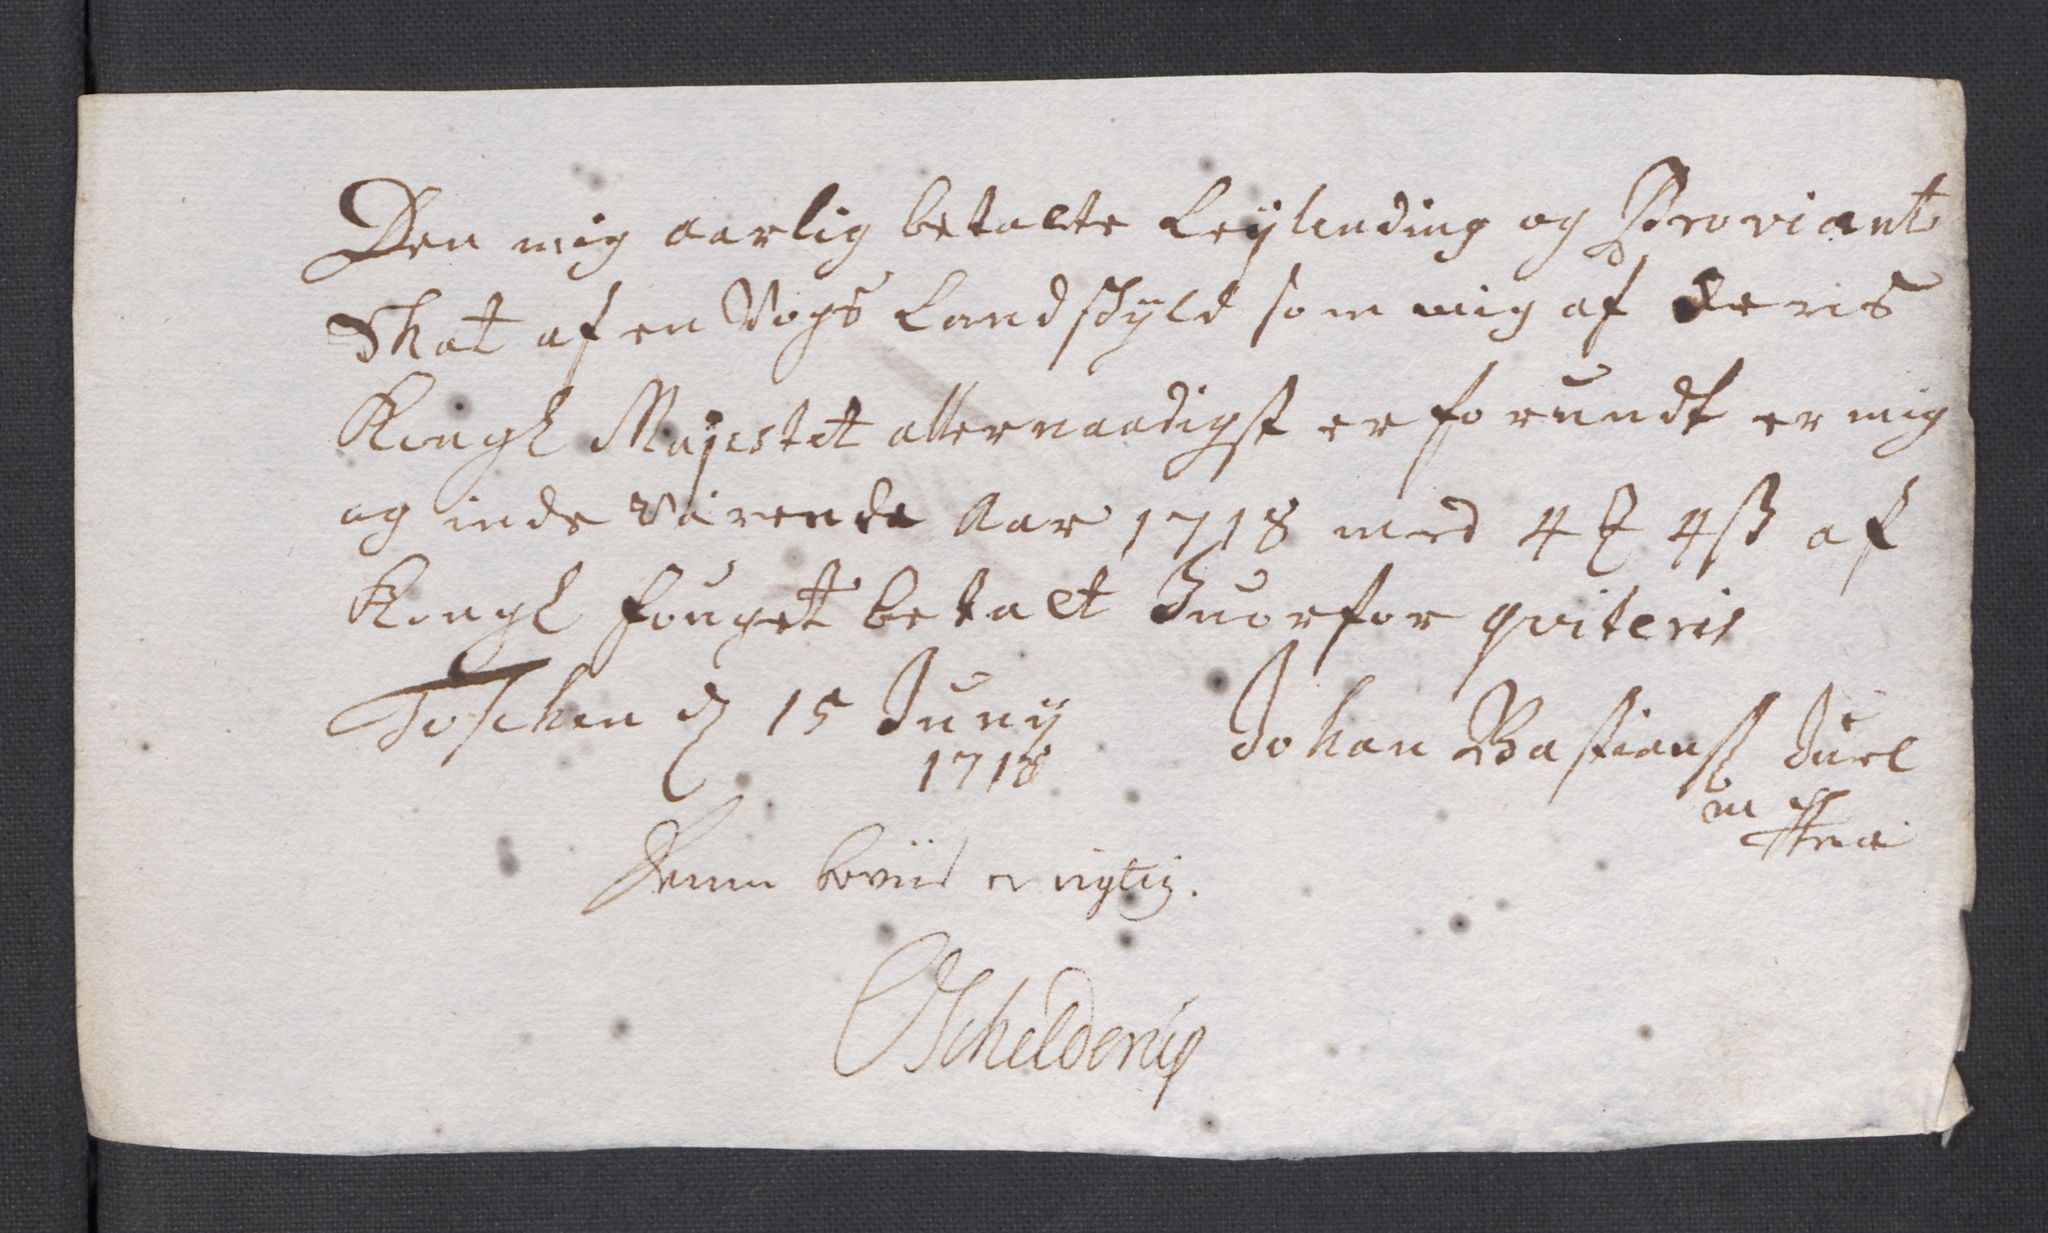 Den mig aarlig betalte Leylending og Proviant
Skat af en Vogs Landskyld som mig af deris
Kongl Mayestet allernaadigst er forundt er mig
og inde værende Aar 1718 med 4 4 ß af
Kongl Fouget betalt Huorfor qviteris
Toschen d 15 Juny Johan Bastianß Juel
1718
m
Denne beviis er rigtig.
OSchelderup